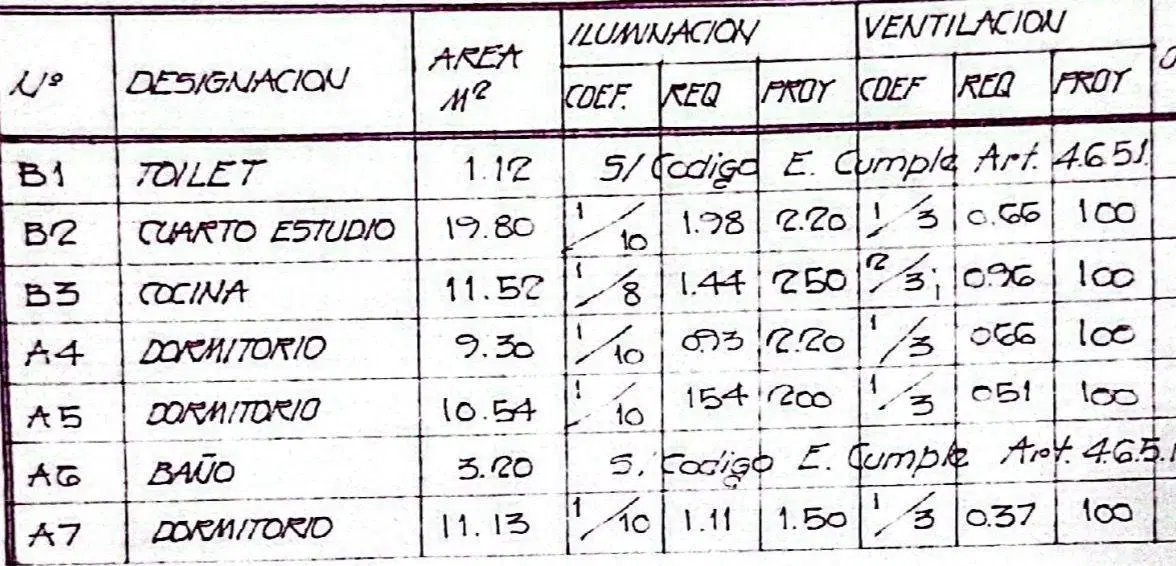 Nº DESIGNACION AREA M² ILUMINACION VENTILACION
COEF. REQ PROY COEF REQ PROY
B1 TOILET 1.12 S/ Codigo E. Cumple Art. 4.6.5.1.
B2 CUARTO ESTUDIO 19.80 1/10 1.98 2.20 1/3 0.66 100
B3 COCINA 11.52 1/8 1.44 250 2/3 0.96 100
A4 DORMITORIO 9.30 1/10 093 2.20 1/3 066 100
A5 DORMITORIO 10.54 1/10 154 200 1/3 051 100
A6 BAÑO 3.20 S. Codigo E. Cumple Art. 4.6.5.1
A7 DORMITORIO 11.13 1/10 1.11 1.50 1/3 0.37 100